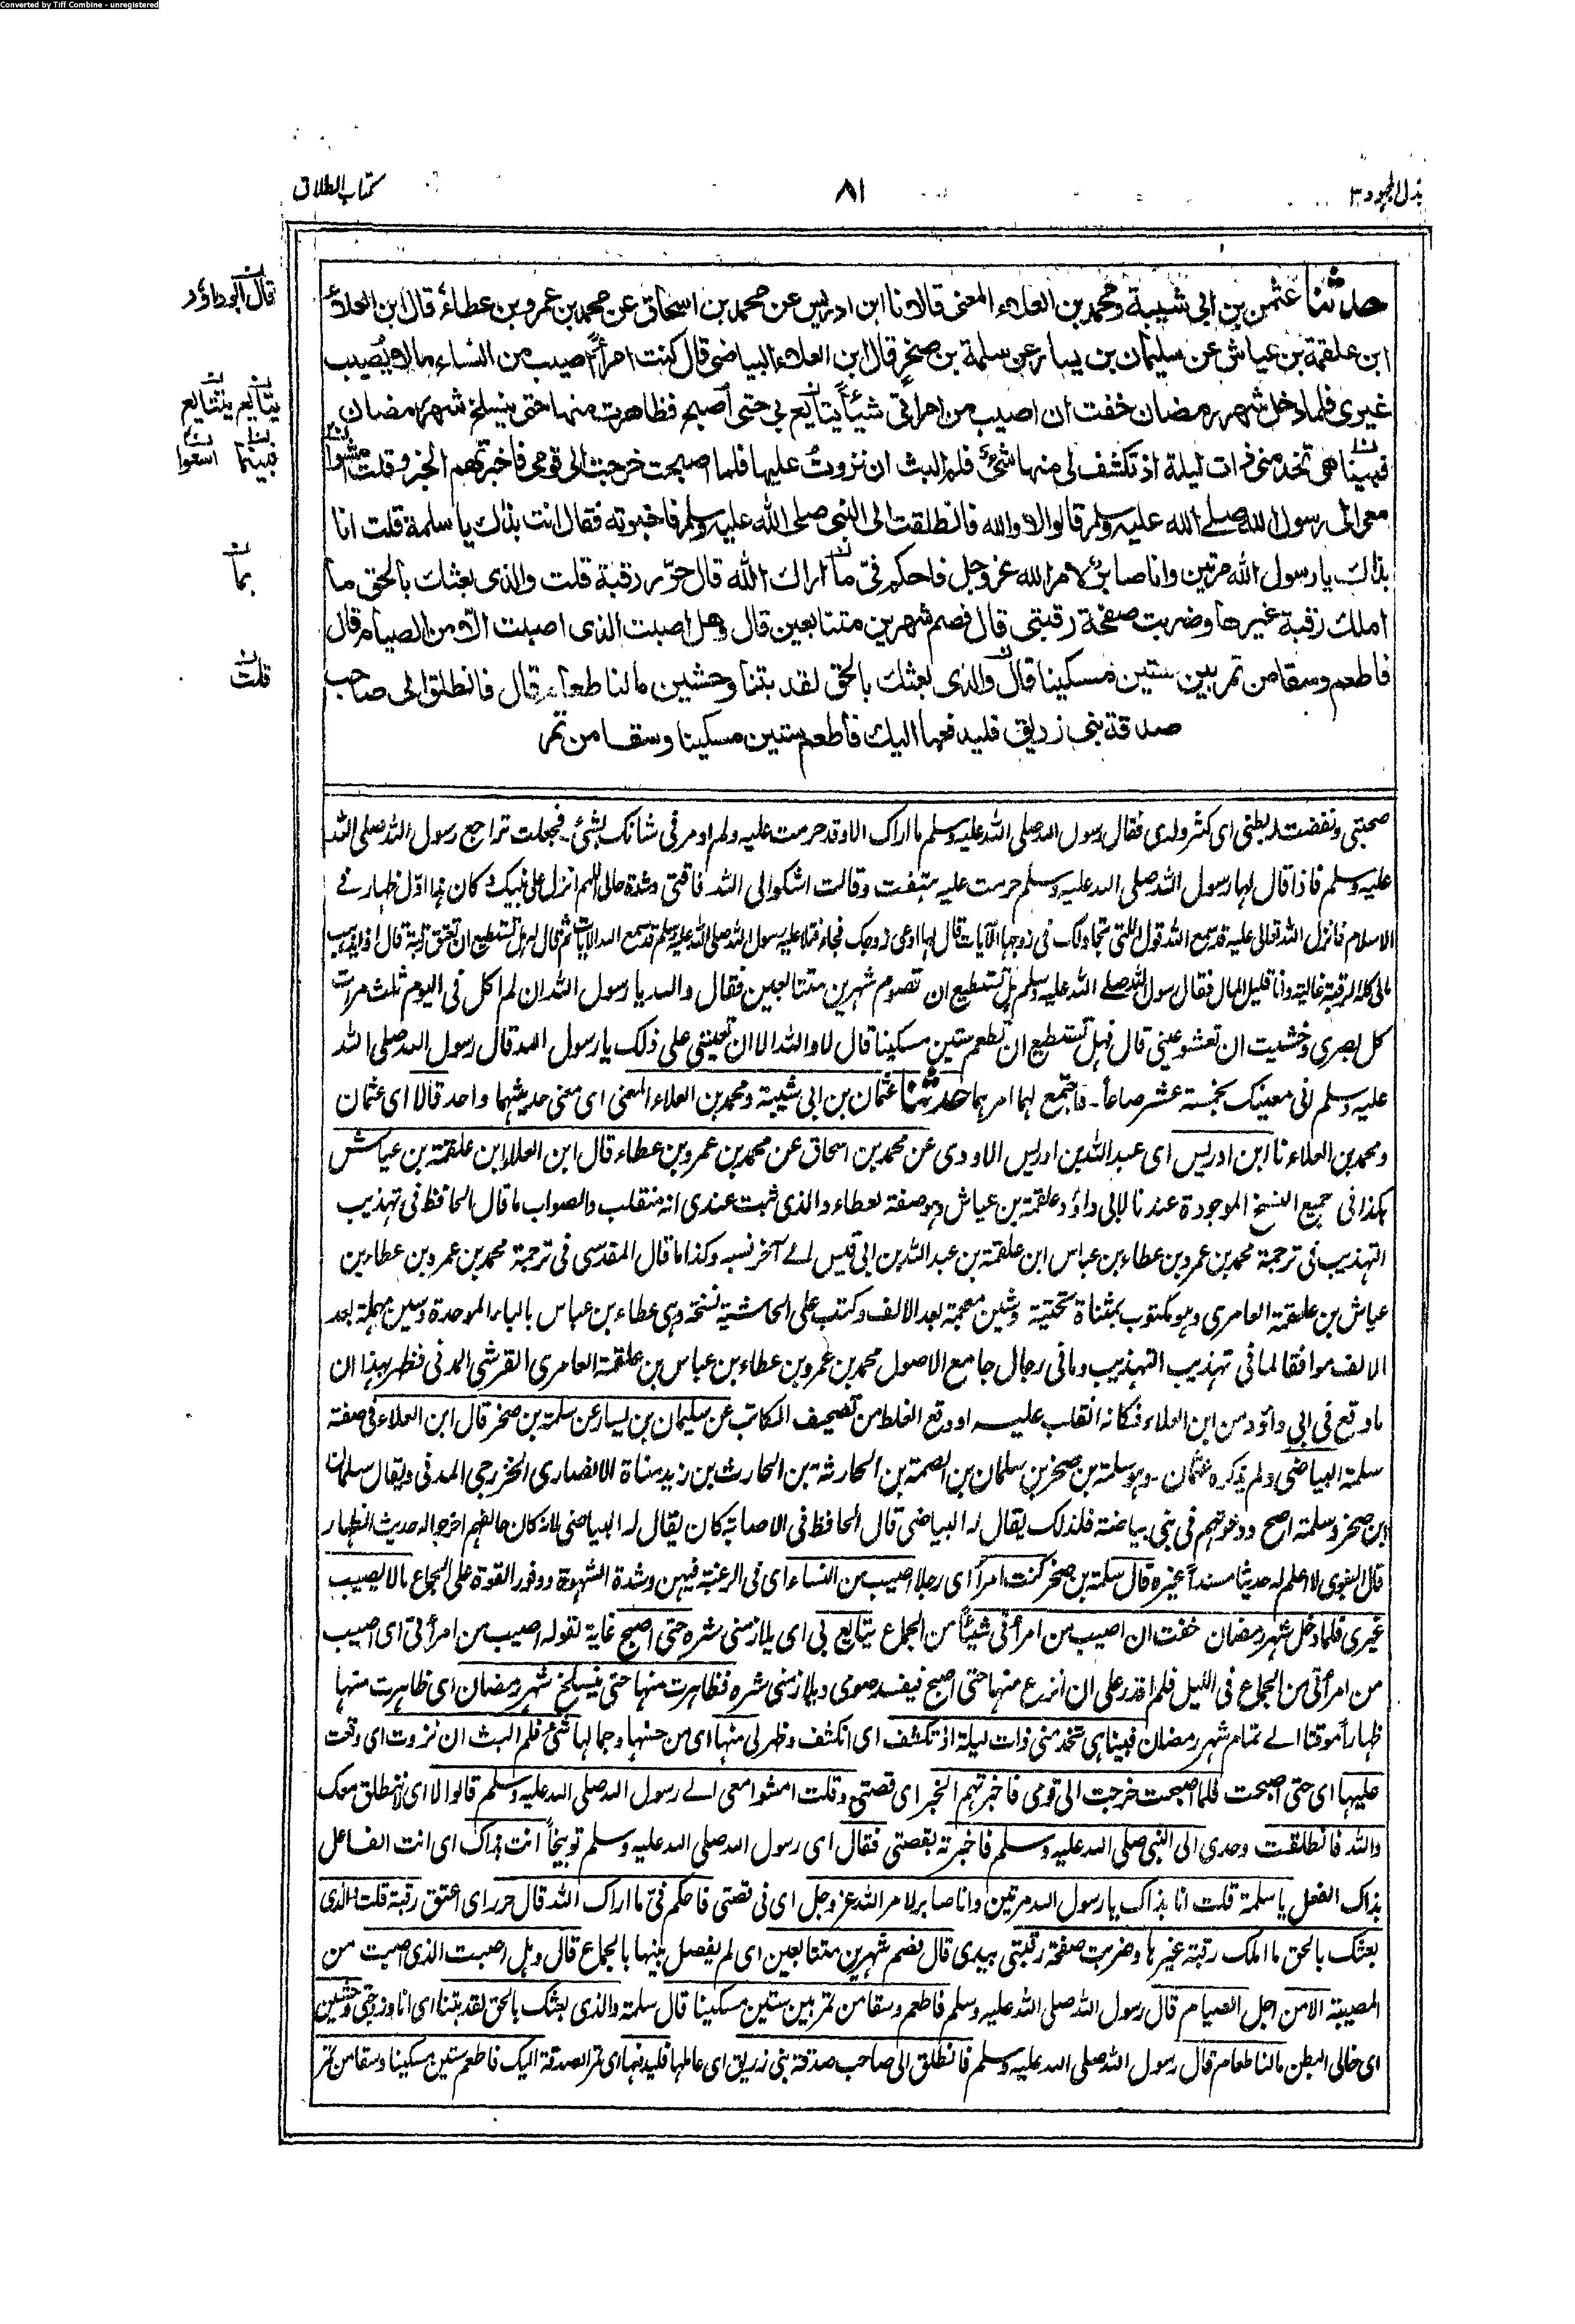 Converted by Tiff Combine - unregistered
بذل المجهود ٣
٨١
كتاب الطلاق
حدثنا عثمن بن ابى شيبة ومحمد بن العلاء المعنى قالا نا ابن ادريس عن محمد بن اسحاق عن محمد بن عمرو بن عطاء قال ابن العلاء
ابن علقمة بن عياش عن سليمان بن يسار عن سلمة بن صخر قال ابن العلاء البياضى قال كنت امرأ اصيب من النساء مالا يصيب
غيرى فلما دخل شهر رمضان خفت ان اصيب من امرأتى شيئا يتايع بى حتى اصبح فظاهرت منها حتى ينسلخ شهر رمضان
فبينا هى تخدمنى ذات ليلة اذ تكشف لى منها شئ فلم البث ان نزوت عليها فلما اصبحت خرجت الى قومى فاخبرتهم الخبر وقلت امشوا
معى الى رسول الله صلى الله عليه وسلم قالوا لا والله فانطلقت الى النبى صلى الله عليه وسلم فاخبرته فقال انت بذاك يا سلمة قلت انا
بذاك يا رسول الله مرتين وانا صابر لامر الله عز وجل فاحكم فى ما اراك الله قال حرر رقبة قلت والذى بعثك بالحق ما
املك رقبة غيرها وضربت صفحة رقبتى قال فصم شهرين متتابعين قال وهل اصبت الذى اصبت الا من الصيام قال
فاطعم وسقا من تمر بين ستين مسكينا قال والذى بعثك بالحق لقد بتنا وحشين مالنا طعام قال فانطلق الى صاحب
صدقة بنى زريق فليدفعها اليك فاطعم ستين مسكينا وسقا من تمر
قال ابوداؤد
يتابع يتتايع
فبينما اسعوا
بما
قلت
صحبتى ونفضت له بطنى اى كثر ولدى فقال رسول الله صلى الله عليه وسلم ما اراك الا وقد حرمت عليه ولم اومر فى شانك بشئ - فجعلت تراجع رسول الله صلى الله
عليه وسلم فاذا قال لها رسول الله صلى الله عليه وسلم حرمت عليه هتفت وقالت اشكو الى الله فاقتى وشدة حالى اللهم انزل على نبيك وكان هذا اول ظهار فى
الاسلام فانزل الله تعالى عليه قد سمع الله قول التى تجادلك فى زوجها الآيات قال لها ادعى زوجك فجاء فتلا عليه رسول الله صلى الله عليه وسلم قد سمع الله الآيات ثم قال له هل تستطيع ان تعتق رقبة قال اذا يذهب
مالى كله الرقبة غالية وانا قليل المال فقال رسول الله صلى الله عليه وسلم هل تستطيع ان تصوم شهرين متتابعين فقال والله يا رسول الله ان لم اكل فى اليوم ثلث مرات
كل بصرى وخشيت ان تعشو عينى قال فهل تستطيع ان تطعم ستين مسكينا قال لا والله الا ان تعيننى على ذلك يا رسول الله قال رسول الله صلى الله
عليه وسلم انى معينك بخمسة عشر صاعا - فاجتمع لهما امرهما حدثنا عثمان بن ابى شيبة ومحمد بن العلاء المعنى اى معنى حديثهما واحد قالا اى عثمان
ومحمد بن العلاء نا ابن ادريس اى عبد الله بن ادريس الاودى عن محمد بن اسحاق عن محمد بن عمرو بن عطاء قال ابن العلاء ابن علقمة بن عياش
هكذا فى جميع النسخ الموجودة عندنا لابى داؤد علقمة بن عياش وهو صفة لعطاء والذى ثبت عندى انه منقلب والصواب ما قال الحافظ فى تهذيب
التهذيب فى ترجمة محمد بن عمرو بن عطاء بن عباس ابن علقمة بن عبد الله بن ابى قيس الى آخر نسبه وكذا ما قال المقدسى فى ترجمة محمد بن عمرو بن عطاء بن
عياش بن علقمة العامرى وهو مكتوب بمثناة تحتية وشين معجمة بعد الالف وكتب على الحاشية نسخة وهى عطاء بن عباس بالباء الموحدة وسين مهملة بعد
الالف موافقا لما فى تهذيب التهذيب وما فى رجال جامع الاصول محمد بن عمرو بن عطاء بن عباس بن علقمة العامرى القرشى المدنى فظهر بهذا ان
ما وقع فى ابى داؤد من ابن العلاء فكانه انقلب عليه او وقع الغلط من تصحيف الكاتب عن سليمان بن يسار عن سلمة بن صخر قال ابن العلاء فى صفة
سلمة البياضى ولم يذكره عثمان - وهو سلمة بن صخر بن سلمان بن الصمة بن الحارثة بن الحارث بن زيد مناة الانصارى الخزرجى المدنى ويقال سلمان
ابن صخر وسلمة اصح ودعوتهم فى بنى بياضة فلذلك يقال له البياضى قال الحافظ فى الاصابة كان يقال له البياضى لانه كان حالفهم اخرجوا له حديث الظهار
قال البغوى لا اعلم له حديثا مسندا غيره قال سلمة بن صخر كنت امرأ اى رجلا اصيب من النساء اى فى الرغبة فيهن وشدة الشهوة ووفور القوة على الجماع مالا يصيب
غيرى فلما دخل شهر رمضان خفت ان اصيب من امرأتى شيئا من الجماع يتايع بى اى يلازمنى شره حتى اصبح غاية لقوله اصيب من امرأتى اى اصيب
من امرأتى من الجماع فى الليل فلم اقدر على ان انزع منها حتى اصبح فيفسد صومى ويلازمنى شره فظاهرت منها حتى ينسلخ شهر رمضان اى ظاهرت منها
ظهارا موقتا الى تمام شهر رمضان فبينا هى تخدمنى ذات ليلة اذ تكشف اى انكشف وظهر لى منها اى من حسنها وجمالها شئ فلم البث ان نزوت اى وقعت
عليها اى حتى اصبحت فلما اصبحت خرجت الى قومى فاخبرتهم الخبر اى قصتى وقلت امشوا معى الى رسول الله صلى الله عليه وسلم قالوا لا اى لا ننطلق معك
والله فانطلقت وحدى الى النبى صلى الله عليه وسلم فاخبرته بقصتى فقال اى رسول الله صلى الله عليه وسلم توبيخا انت بذاك اى انت الفاعل
بذاك الفعل يا سلمة قلت انا بذاك يا رسول الله مرتين وانا صابر لامر الله عز وجل اى فى قصتى فاحكم فى ما اراك الله قال حرر اى اعتق رقبة قلت والذى
بعثك بالحق ما املك رقبة غيرها وضربت صفحة رقبتى بيدى قال فصم شهرين متتابعين اى لم يفصل بينها بالجماع قال وهل اصبت الذى اصبت من
المصيبة الا من اجل الصيام قال رسول الله صلى الله عليه وسلم فاطعم وسقا من تمر بين ستين مسكينا قال سلمة والذى بعثك بالحق لقد بتنا اى انا وزوجتى وحشين
اى خالى البطن مالنا طعام قال رسول الله صلى الله عليه وسلم فانطلق الى صاحب صدقة بنى زريق اى عاملها فليدفعها اى تمر الصدقة اليك فاطعم ستين مسكينا وسقا من تمر